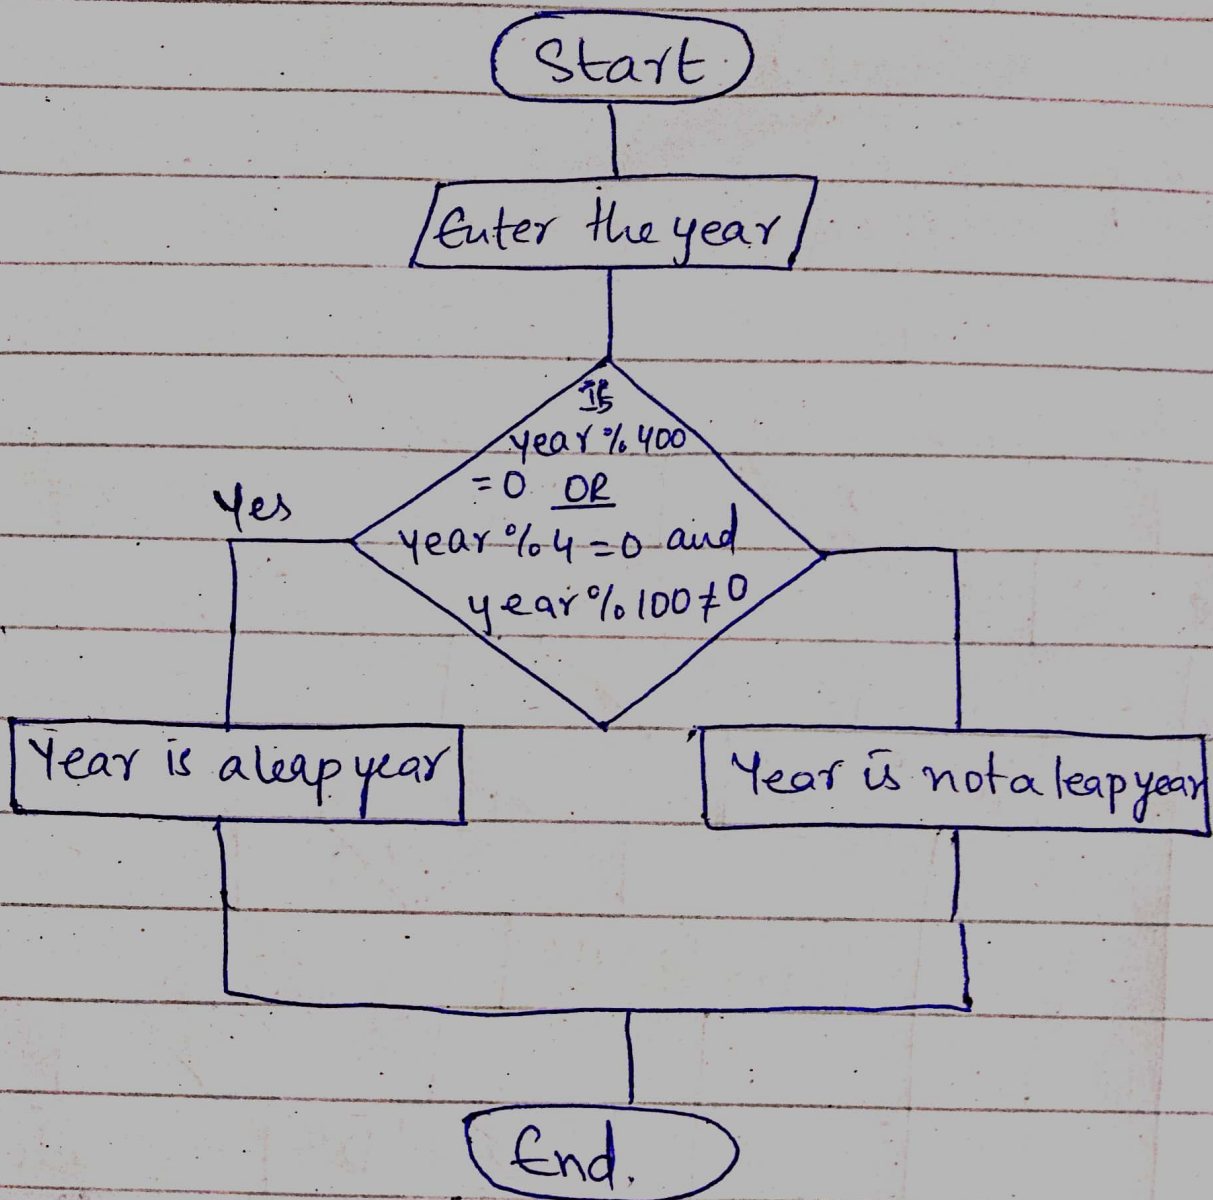 Start
Enter the year
If
year % 400
= 0 OR
Yes
year % 4 = 0 and
year % 100 ≠ 0
Year is a leap year
Year is not a leap year
End.